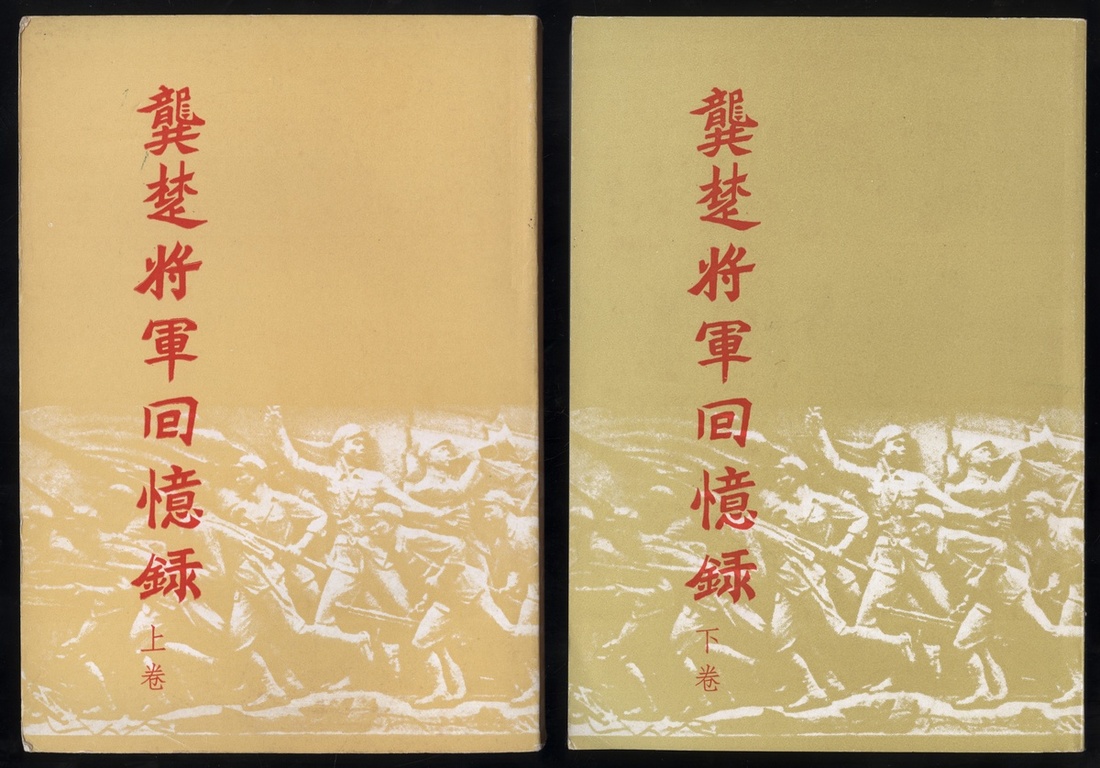 龔楚將軍回憶録
上卷
龔楚將軍回憶録
下卷